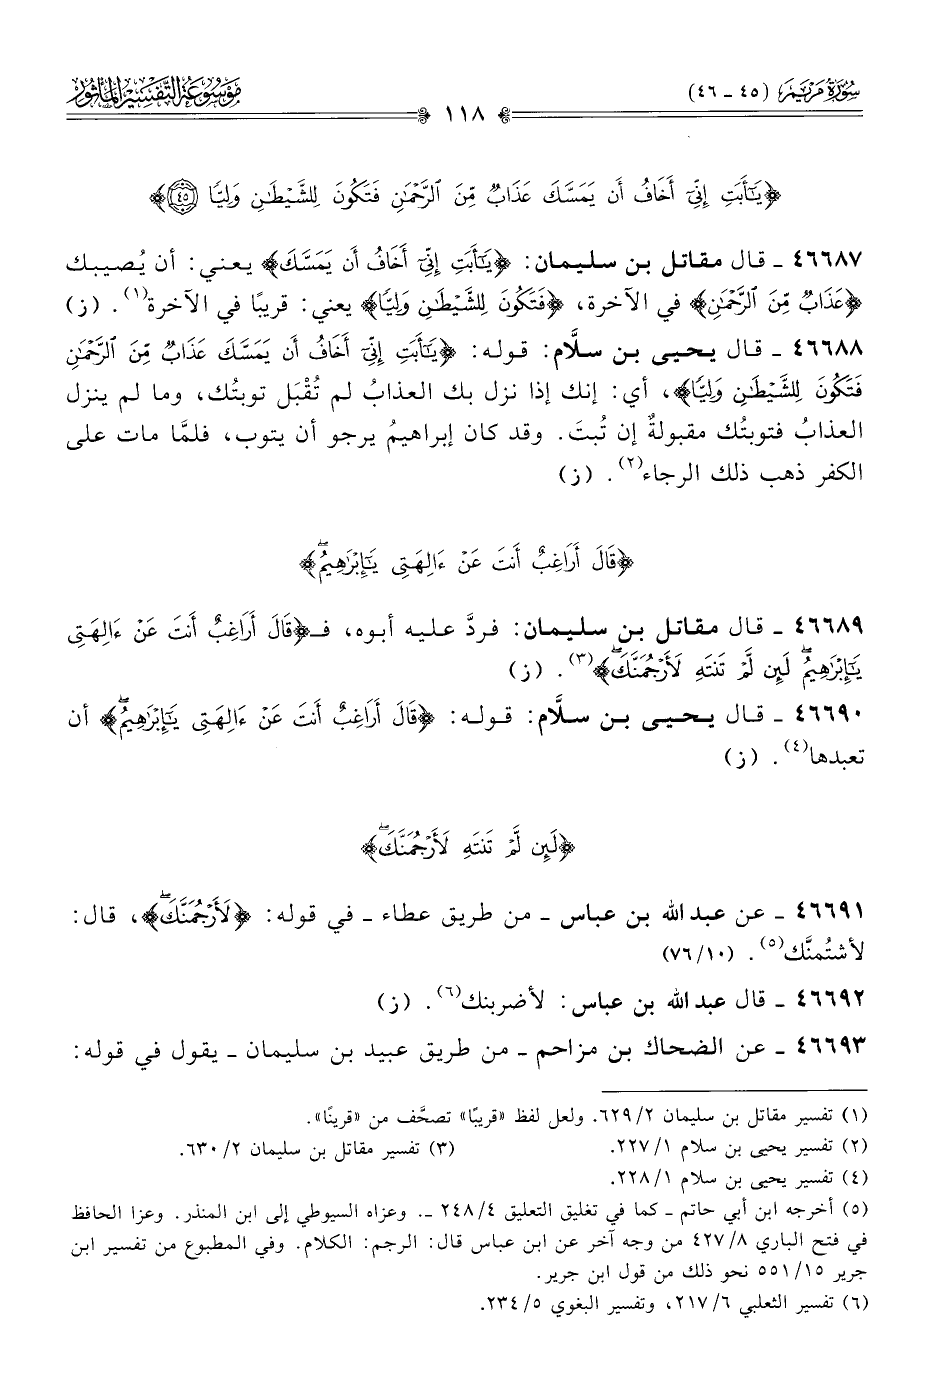 سُورَةُ مَرْيَمَ (٤٥ - ٤٦)
١١٨
مَوْسُوعَةُ التَّفْسِيرِ المَأْثُورِ
﴿يَٰٓأَبَتِ إِنِّيٓ أَخَافُ أَن يَمَسَّكَ عَذَابٌ مِّنَ ٱلرَّحْمَٰنِ فَتَكُونَ لِلشَّيْطَٰنِ وَلِيًّا ٤٥﴾
٤٦٦٨٧ - قال مقاتل بن سليمان: ﴿يَٰٓأَبَتِ إِنِّيٓ أَخَافُ أَن يَمَسَّكَ﴾ يعني: أن يُصيبك
﴿عَذَابٌ مِّنَ ٱلرَّحْمَٰنِ﴾ في الآخرة، ﴿فَتَكُونَ لِلشَّيْطَٰنِ وَلِيًّا﴾ يعني: قريبًا في الآخرة(١). (ز)
٤٦٦٨٨ - قال يحيى بن سلَّام: قوله: ﴿يَٰٓأَبَتِ إِنِّيٓ أَخَافُ أَن يَمَسَّكَ عَذَابٌ مِّنَ ٱلرَّحْمَٰنِ
فَتَكُونَ لِلشَّيْطَٰنِ وَلِيًّا﴾، أي: إنك إذا نزل بك العذابُ لم تُقْبَل توبتُك، وما لم ينزل
العذابُ فتوبتُك مقبولةٌ إن تُبتَ. وقد كان إبراهيمُ يرجو أن يتوب، فلمَّا مات على
الكفر ذهب ذلك الرجاء(٢). (ز)
﴿قَالَ أَرَاغِبٌ أَنتَ عَنْ ءَالِهَتِي يَٰٓإِبْرَٰهِيمُۖ﴾
٤٦٦٨٩ - قال مقاتل بن سليمان: فردَّ عليه أبوه، فـ﴿قَالَ أَرَاغِبٌ أَنتَ عَنْ ءَالِهَتِي
يَٰٓإِبْرَٰهِيمُۖ لَئِن لَّمْ تَنتَهِ لَأَرْجُمَنَّكَۖ﴾(٣). (ز)
٤٦٦٩٠ - قال يحيى بن سلَّام: قوله: ﴿قَالَ أَرَاغِبٌ أَنتَ عَنْ ءَالِهَتِي يَٰٓإِبْرَٰهِيمُۖ﴾ أن
تعبدها(٤). (ز)
﴿لَئِن لَّمْ تَنتَهِ لَأَرْجُمَنَّكَۖ﴾
٤٦٦٩١ - عن عبد الله بن عباس - من طريق عطاء - في قوله: ﴿لَأَرْجُمَنَّكَۖ﴾، قال:
لأشتُمنَّك(٥). (٧٦/١٠)
٤٦٦٩٢ - قال عبد الله بن عباس: لأضربنك(٦). (ز)
٤٦٦٩٣ - عن الضحاك بن مزاحم - من طريق عبيد بن سليمان - يقول في قوله:
(١) تفسير مقاتل بن سليمان ٦٢٩/٢. ولعل لفظ «قريبًا» تصحَّف من «قرينًا».
(٢) تفسير يحيى بن سلام ٢٢٧/١. (٣) تفسير مقاتل بن سليمان ٦٣٠/٢.
(٤) تفسير يحيى بن سلام ٢٢٨/١.
(٥) أخرجه ابن أبي حاتم - كما في تغليق التعليق ٢٤٨/٤ -. وعزاه السيوطي إلى ابن المنذر. وعزا الحافظ
في فتح الباري ٤٢٧/٨ من وجه آخر عن ابن عباس قال: الرجم: الكلام. وفي المطبوع من تفسير ابن
جرير ٥٥١/١٥ نحو ذلك من قول ابن جرير.
(٦) تفسير الثعلبي ٢١٧/٦، وتفسير البغوي ٢٣٤/٥.